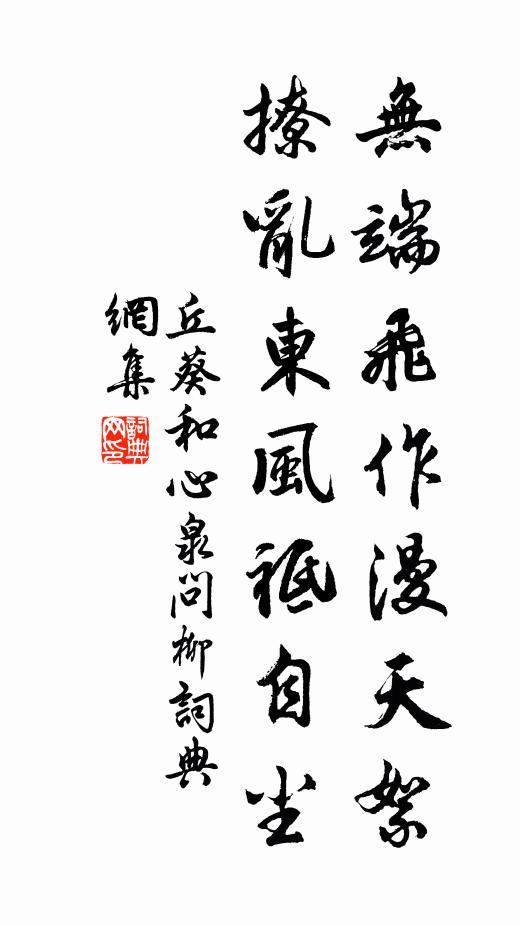 無端飛作漫天絮
撩亂東風祗自尘
丘葵和心泉问柳詞典
網集
詞典
网印